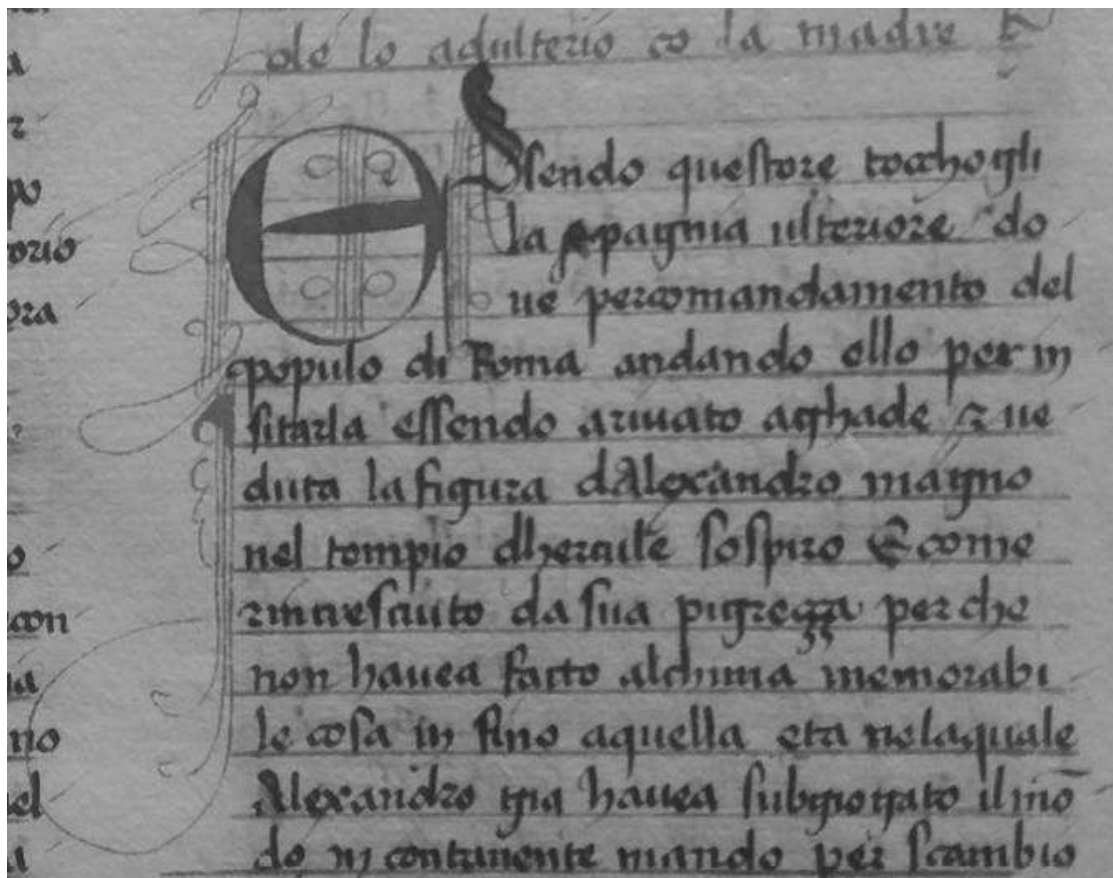 de lo adulterio co la madre
Essendo questore tocchogli
la spagnia ulteriore do
ue per comandamento del
populo di Roma andando ello per in
sitarla essendo arivato aghade z ue
duta la figura dAlexandro magno
nel tempio dhercule sospiro E come
rincresciuto da sua pigrezza per che
non hauea facto alchuna memorabi
le cosa in fino aquella eta nelaquale
Alexandro gia hauea subgiogato il mo
do in contanente mando per scambio
orio
ora
con
no